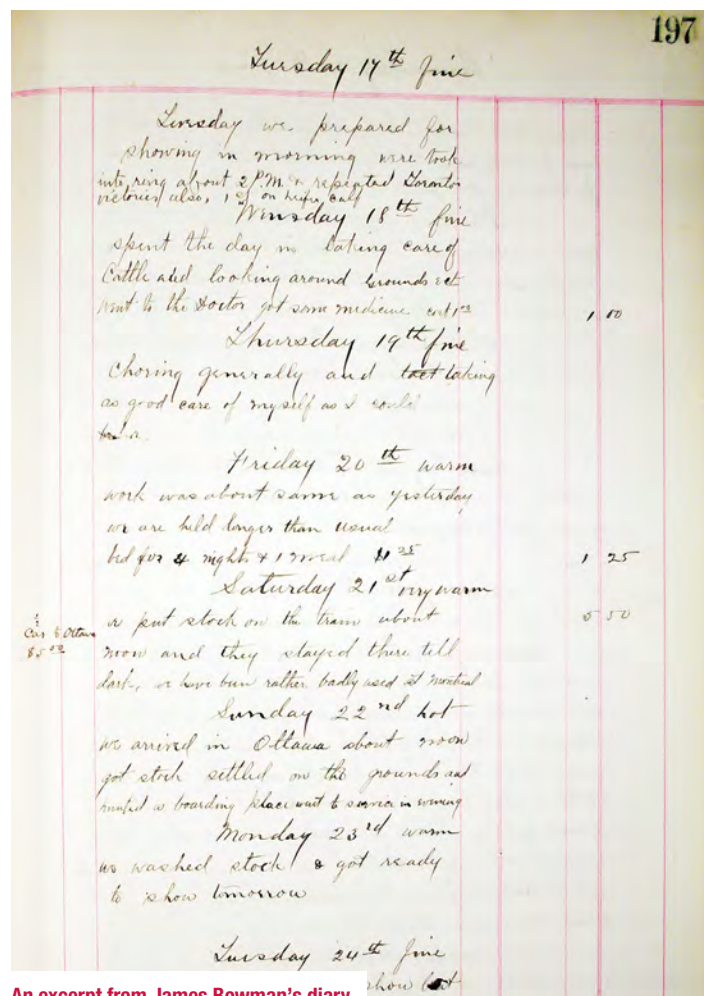 197
Tuesday 17th fine
Tuesday we prepared for
showing in morning were took
into ring about 2 P.M. & repeated Toronto
victories also, 1st on heifer calf
Wensday 18th fine
spent the day in taking care of
Cattle and looking around grounds ect
went to the Doctor got some medicine cost 1.00
1 00
Thursday 19th fine
Choring generally and taking
as good care of myself as I could
Friday 20th warm
work was about same as yesterday
we are held longer than usual
bed for 4 nights & 1 meal $1.25
1 25
Saturday 21st very warm
we put stock on the train about
5 50
Car to Ottawa
$5.50
noon and they stayed there till
dark, we have been rather badly used at Montreal
Sunday 22nd hot
we arrived in Ottawa about noon
got stock settled on the grounds and
a boarding place went to service in evening
Monday 23rd warm
we washed stock & got ready
to show tomorrow
Tuesday 24th fine
show
An excerpt from James Bowman's diary